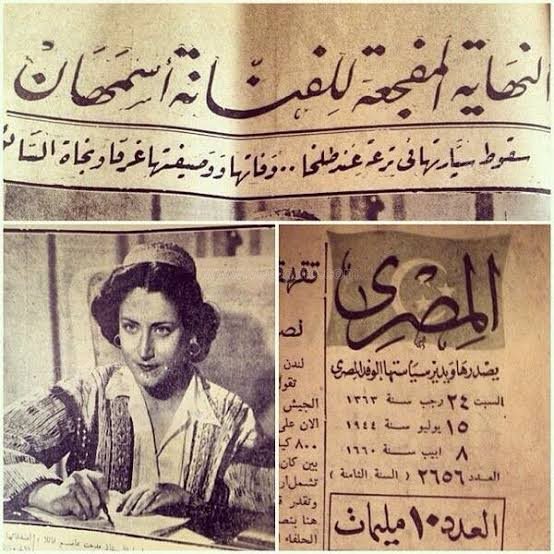 النهاية المفجعة للفنانة أسمهان
سقوط سيارتها في ترعة عند طلخا .. وفاتها ووصيفتها غرقا ونجاة السائق
المصرى
يصدرها ويدير سياستها الوفد المصرى
السبت ٢٤ رجب سنة ١٣٦٣
١٥ يوليو سنة ١٩٤٤
٨ ابيب سنة ١٦٦٠
العدد ٢٦٥٦ ( السنة الثامنة )
العدد ١٠ مليمات
لندن
الجيش
الان على
٨٠٠ كي
بين كان
تشمل
وتقدر
هنا
الحلفاء